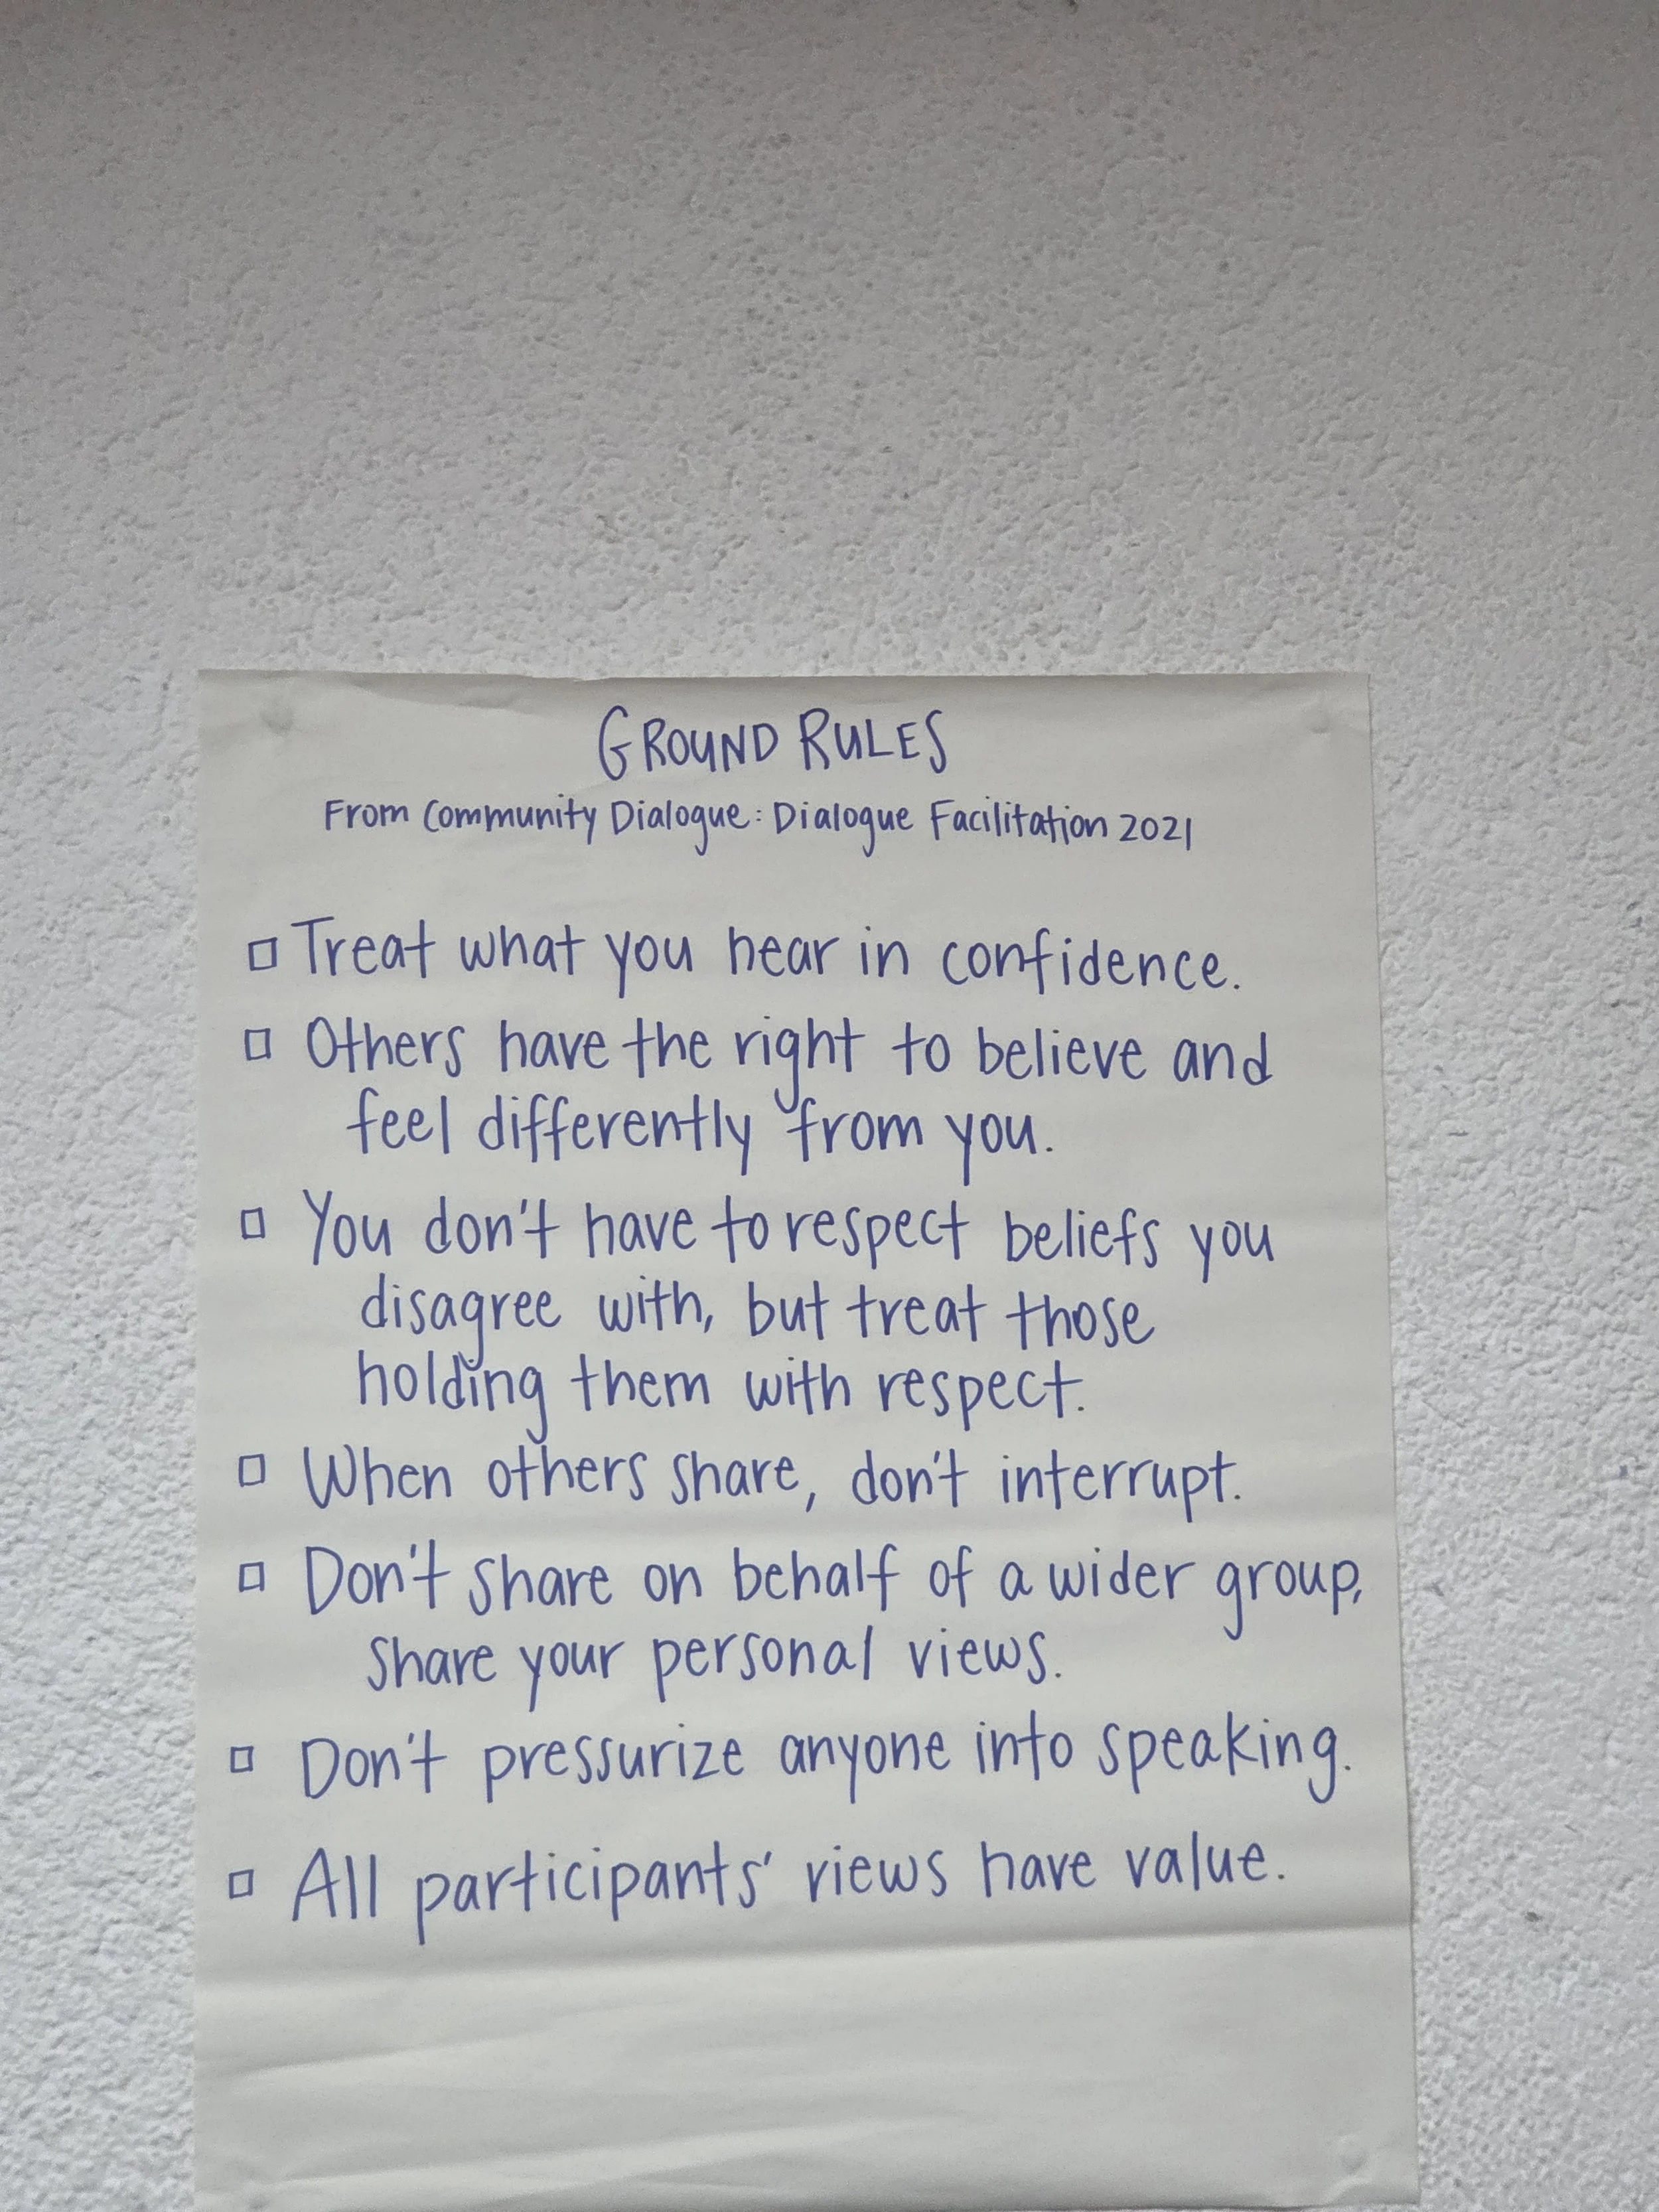 GROUND RULES
From Community Dialogue: Dialogue Facilitation 2021
□ Treat what you hear in confidence.
□ Others have the right to believe and
feel differently from you.
□ You don't have to respect beliefs you
disagree with, but treat those
holding them with respect.
□ When others share, don't interrupt.
□ Don't share on behalf of a wider group,
share your personal views.
□ Don't pressurize anyone into speaking.
□ All participants' views have value.